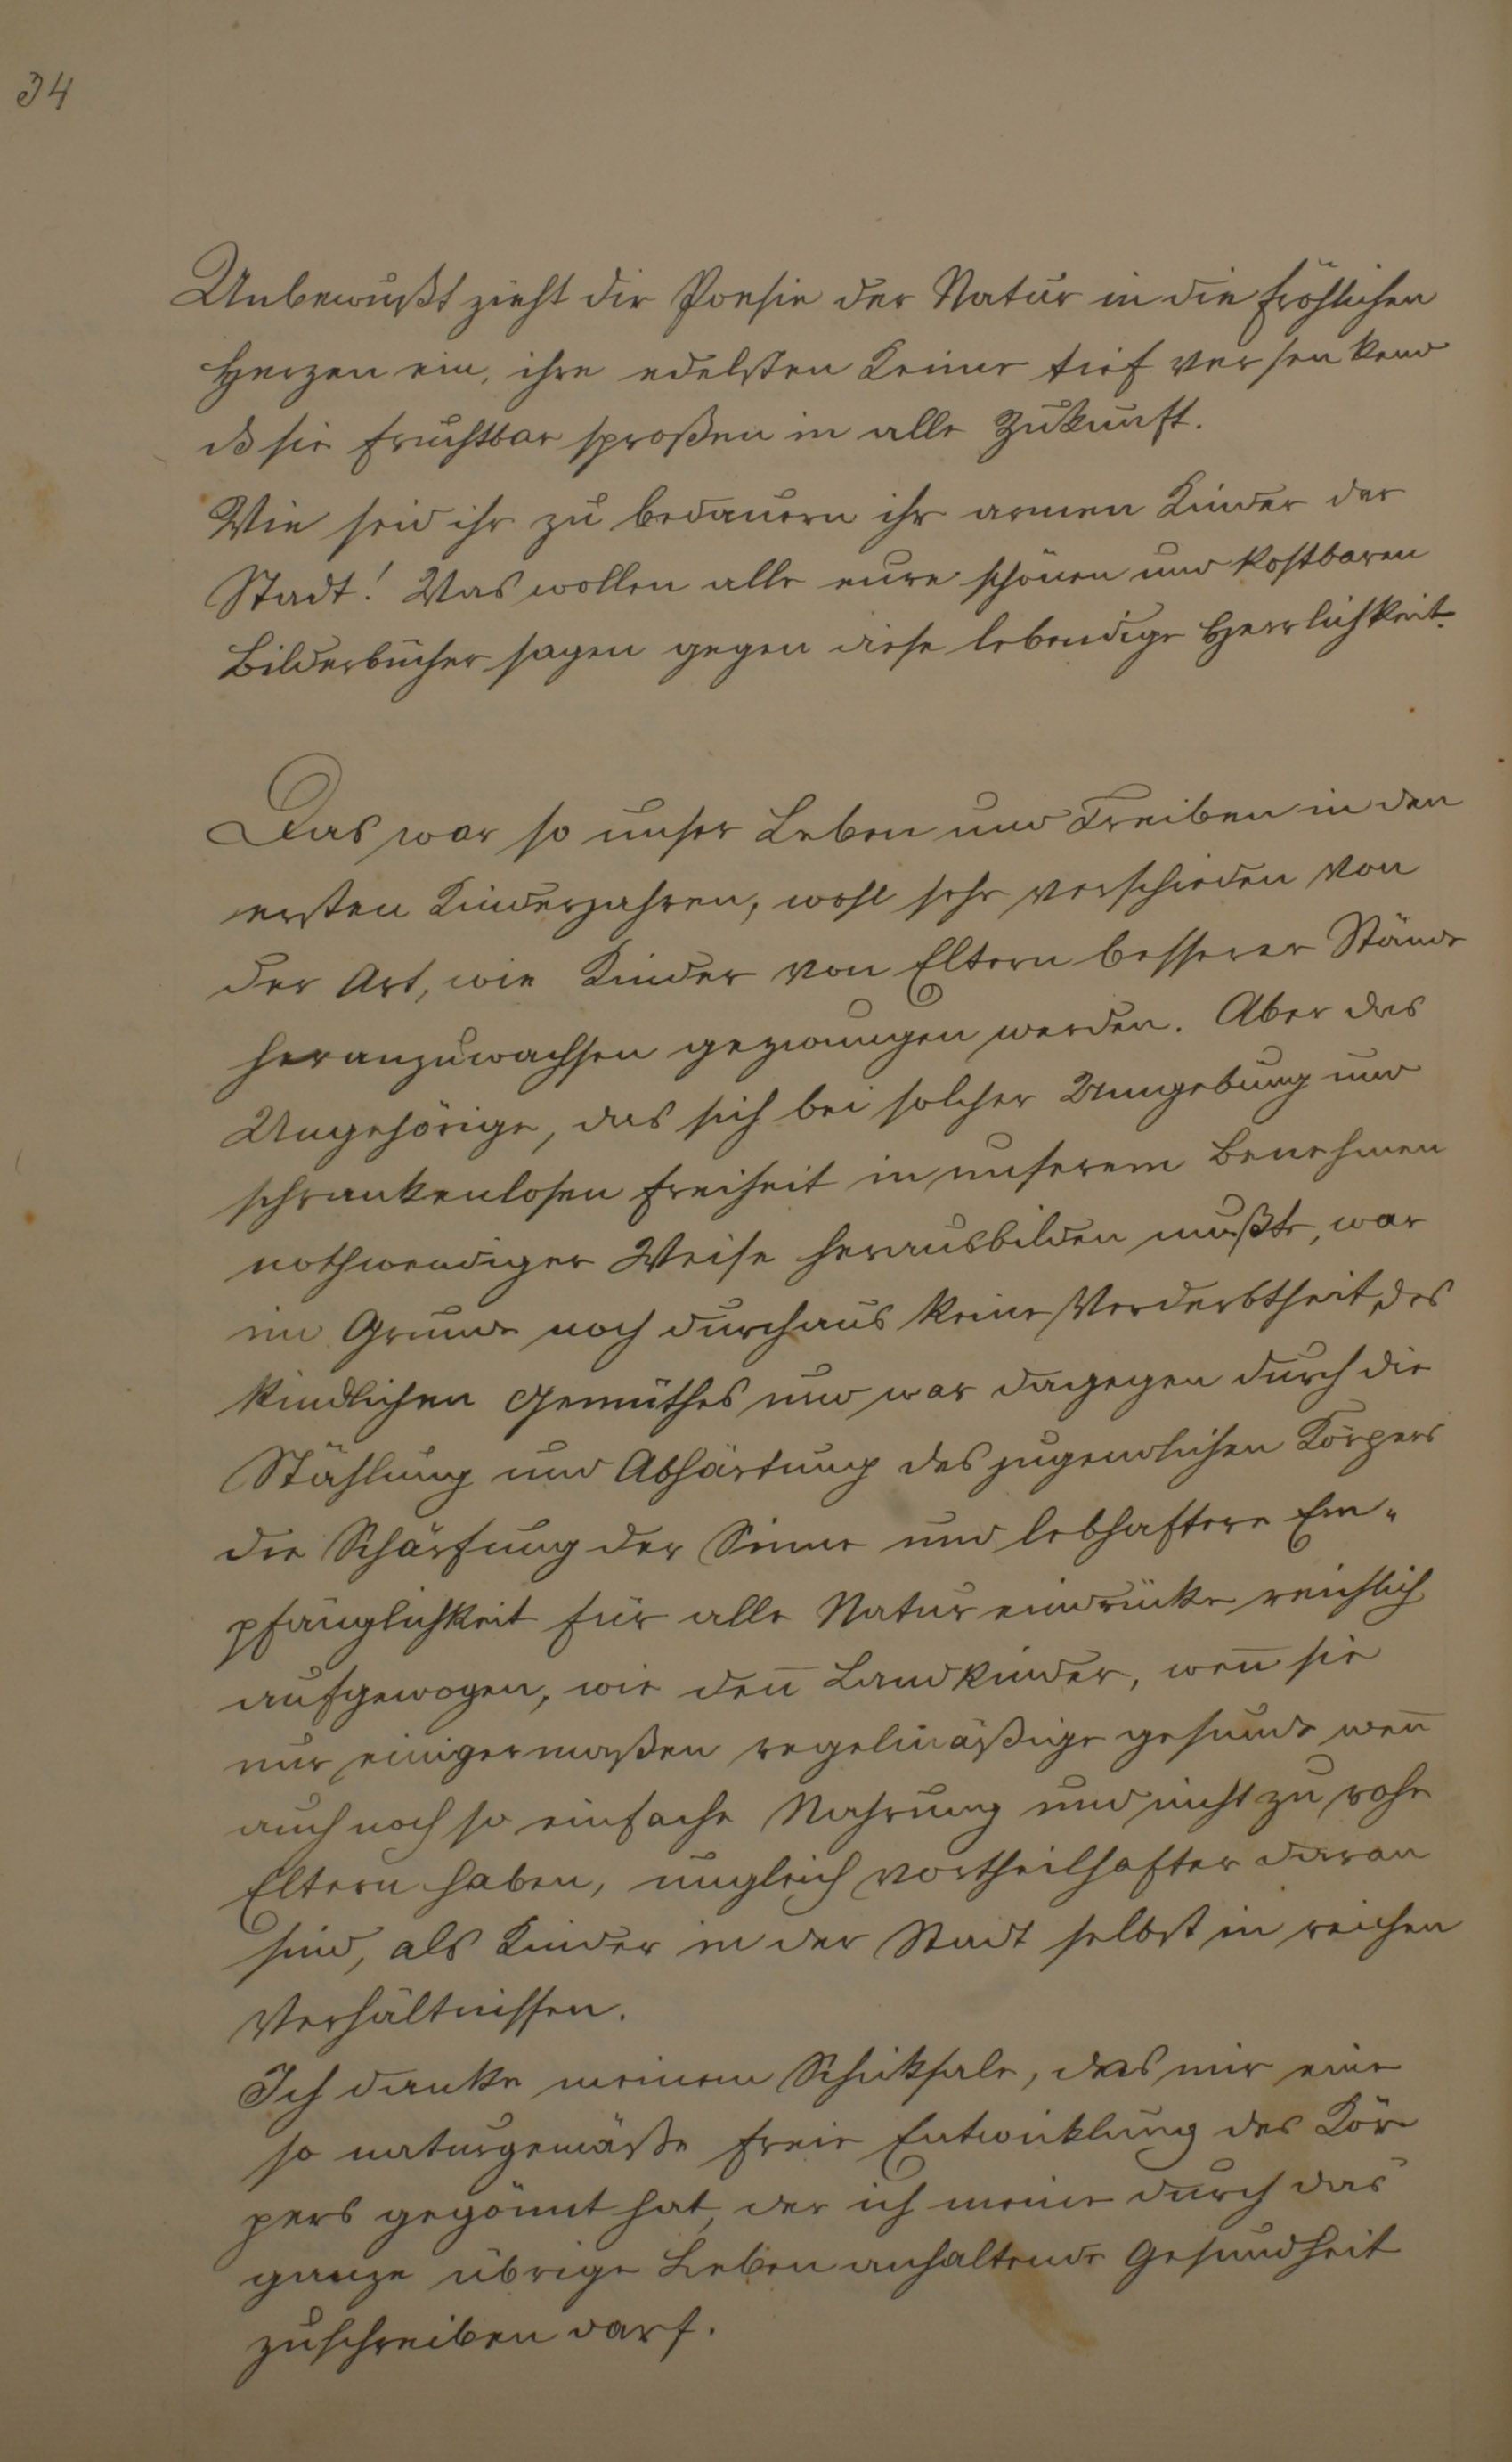 34
Unbewußt zieht die Poesie der Natur in die fröhlichen
Herzen ein, ihre edelsten Keime tief versenkend
dß sie fruchtbar sproßen in alle Zukunft.
Wie seid ihr zu bedauern ihr armen Kinder der
Stadt! Was wollen alle eure schönen und kostbaren
Bilderbücher sagen gegen diese lebendige Herrlichkeit.
Das war so unser Leben und Treiben in den
ersten Kinderjahren, wohl sehr verschieden von
der Art, wie Kinder von Eltern besserer Stände
heranzuwachsen gezwungen werden. Aber das
Ungehörige, das sich bei solcher Umgebung und
schrankenlosen Freiheit in unserem Benehmen
nothwendiger Weise herausbilden mußte, war
im Grunde noch durchaus keine Verderbtheit des
kindlichen Gemüthes und war dagegen durch die
Stählung und Abhärtung des jugendlichen Körpers
die Schärfung der Sinne und lebhaftere Em-
pfänglichkeit für alle Natureindrücke reichlich
aufgewogen, wie deñ Landkinder, weñ sie
nur einigermaßen regelmäßige gesunde weñ
auch noch so einfache Nahrung und nicht zu rohe
Eltern haben, ungleich vortheilhafter daran
sind, als Kinder in der Stadt selbst in reichen
Verhältnissen.
Ich danke meinem Schiksale, das mir eine
so naturgemäße freie Entwicklung des Kör-
pers gegönnt hat, der ich meine durch das
ganze übrige Leben anhaltende Gesundheit
zuschreiben darf.